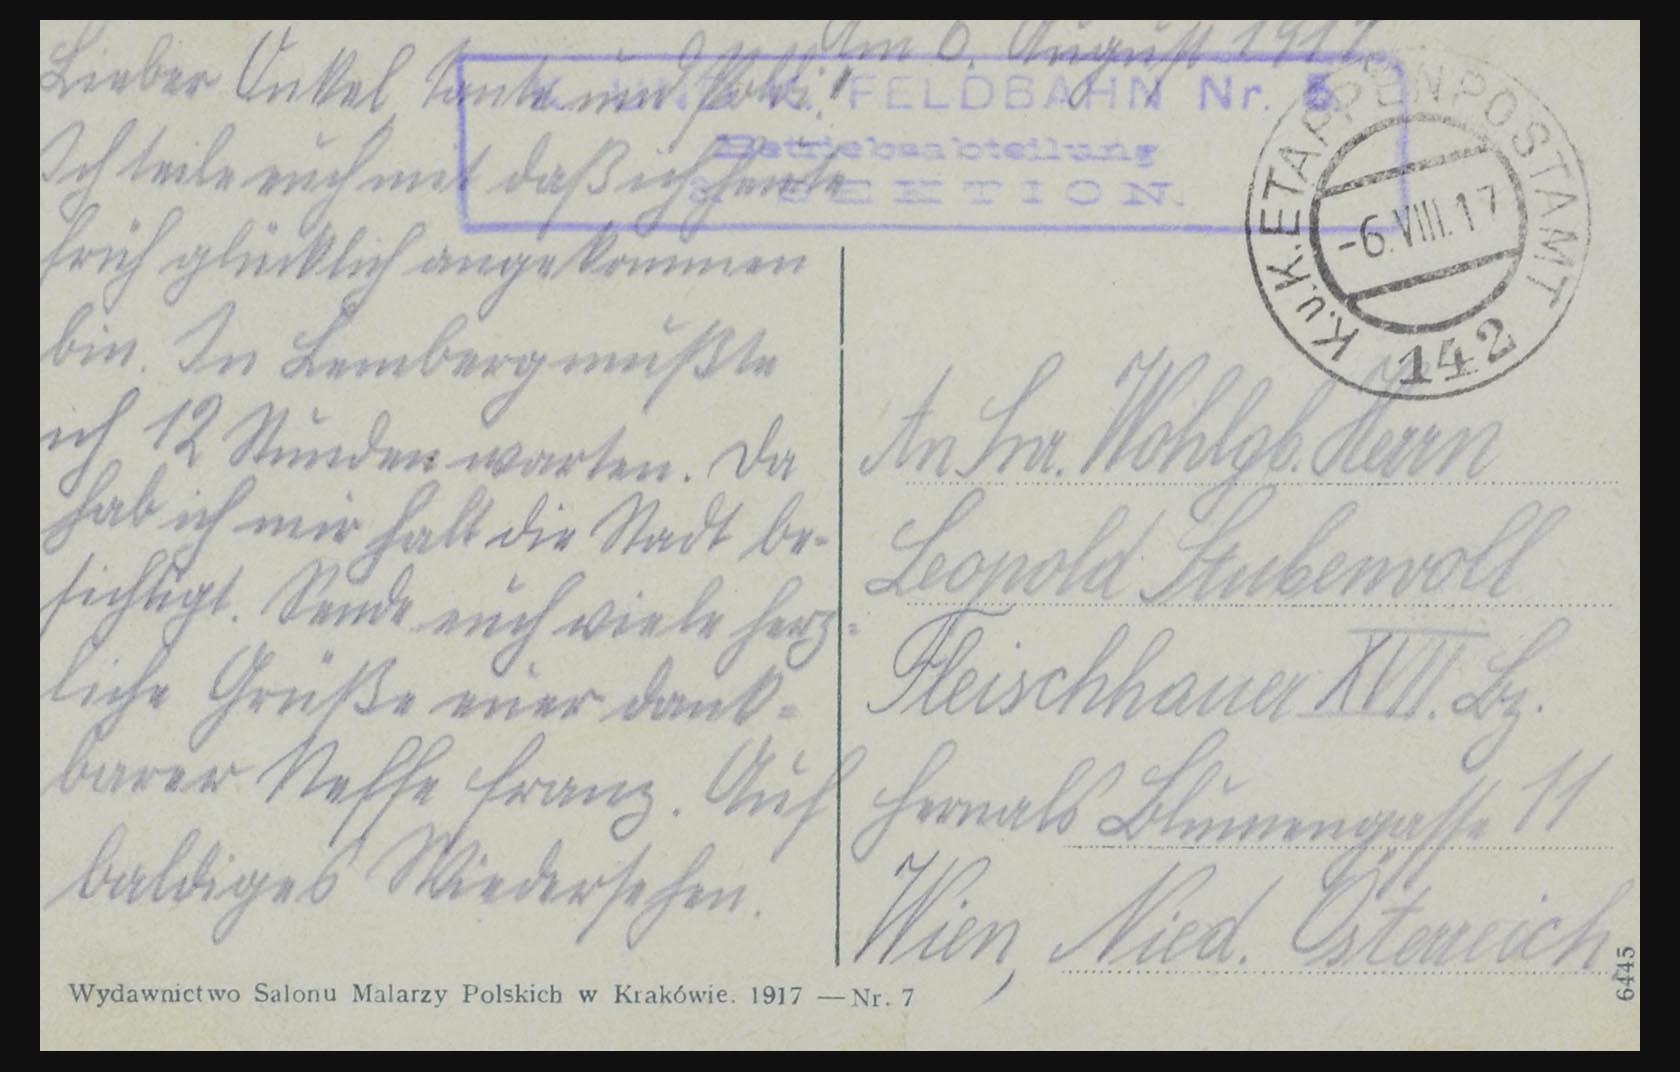 Am 6. August 1917.
Lieber Onkel, Tante und Poldi!
Ich teile euch mit daß ich heute
früh glücklich angekommen
bin. In Lemberg mußte
ich 12 Stunden warten. Da
hab ich mir halt die Stadt be-
sichtigt. Sende euch viele herz-
liche Grüße euer dank-
barer Neffe Franz. Auf
baldiges Wiedersehen.
FELDBAHN Nr. 5.
Betriebsabteilung
SEKTION.
K.u.K. ETAPPENPOSTAMT
-6.VIII.17
142
An Sr. Wohlgb. Herrn
Leopold Stubenvoll
Fleischhauer XVII. Bz.
Hernals Blumengasse 11
Wien, Nied. Österreich
Wydawnictwo Salonu Malarzy Polskich w Krakówie. 1917 — Nr. 7
6445